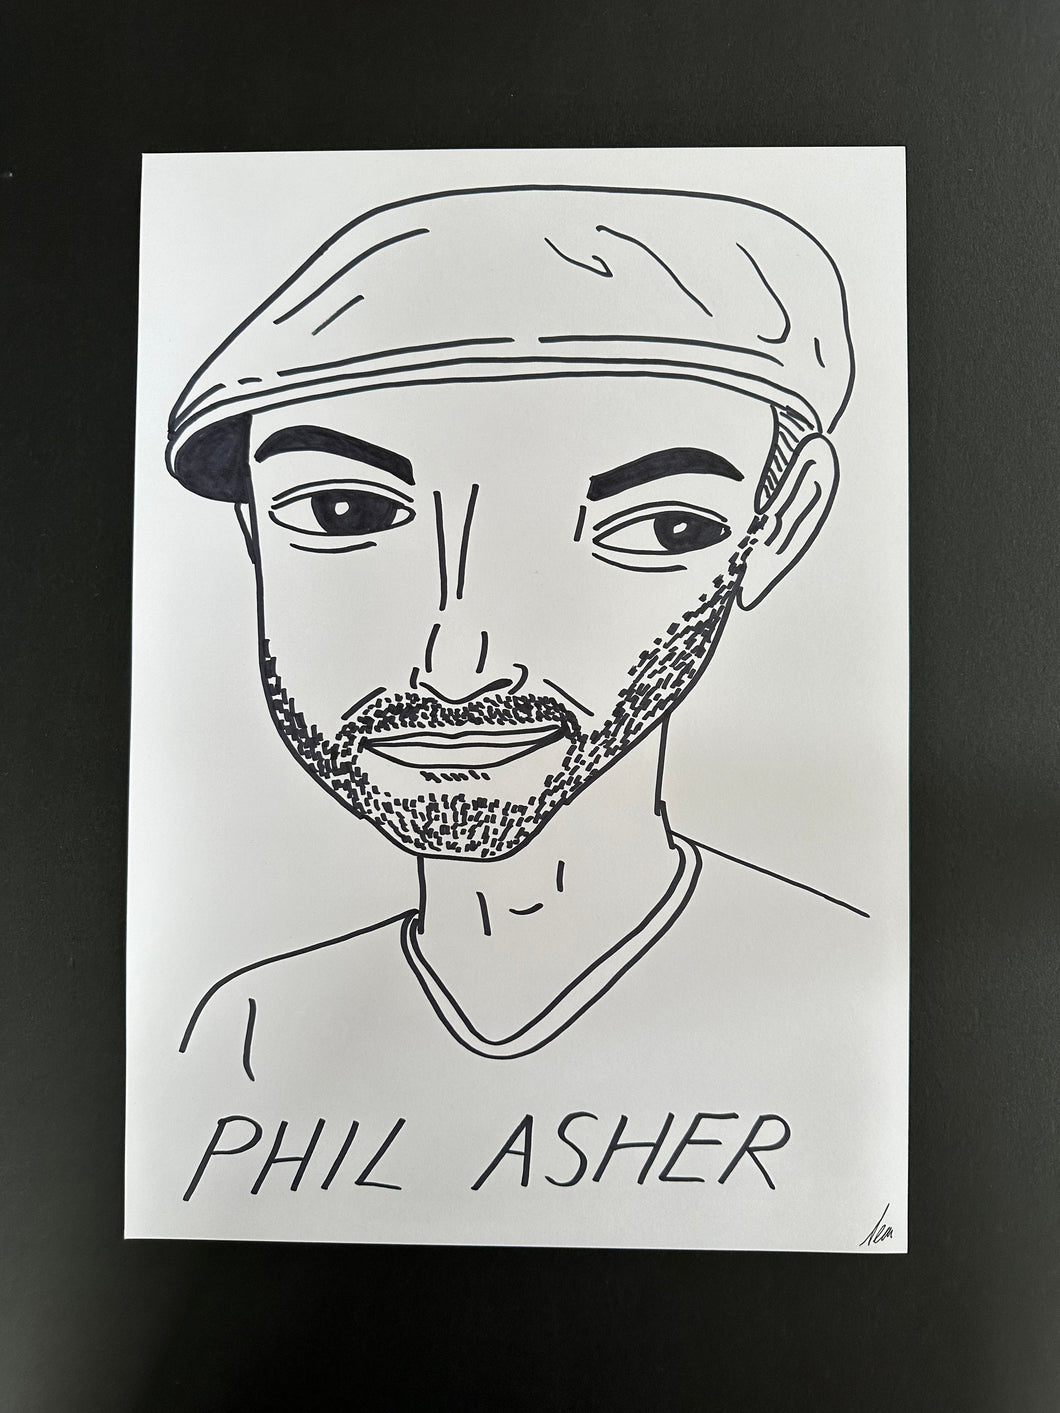 PHIL ASHER